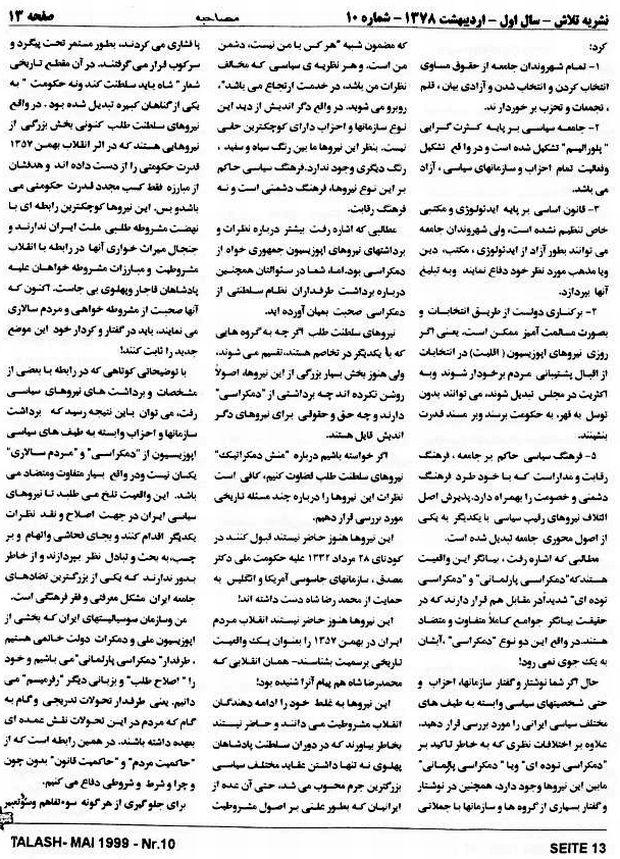 نشریه تلاش - سال اول - اردیبهشت ۱۳۷۸ - شماره ۱۰
مصاحبه
صفحه ۱۳
کرد:
۱- تمام شهروندان جامعه از حقوق مساوی
انتخاب کردن و انتخاب شدن و آزادی بیان ، قلم
، تجمعات و تحزب بر خوردار ند.
۲- جامعه سیاسی بر پایه کثرت گرایی
" پلورالیسم" تشکیل شده است و در وا قع تشکیل
وفعالیت تمام احزاب و سازمانهای سیاسی ، آزاد
می باشد.
۳- قانون اساسی بر پایه ایدئولوژی و مکتبی
خاص تنظیم نشده است، ولی شهروندان جامعه
می توانند بطور آزاد از ایدئولوژی ، مکتب، دین
ویا مذهب مورد نظر خود دفاع نمایند وبه تبلیغ
آنها بپردازد.
۴- برکناری دولت از طریق انتخابات و
بصورت مسالمت آمیز ممکن است. یعنی اگر
روزی نیروهای اپوزیسیون ( اقلیت) در انتخابات
از اقبال پشتیبانی مردم برخودار شوند وبه
اکثریت در مجلس تبدیل شوند، می توانند بدون
توسل به قهر، به حکومت برسند وبر مسند قدرت
بنشینند.
۵- فرهنگ سیاسی حاکم بر جامعه ، فرهنگ
رقابت و مداراست که با خود طرد فرهنگ
دشمنی و خصومت را بهمراه دارد.پذیرش اصل
ائتلاف نیروهای رقیب سیاسی با یکدیگر به یکی
از اصول محوری جامعه تبدیل شده است.
مطالبی که اشاره رفت ، بیانگر این واقعیت
هستندکه"دمکراسی پارلمانی" و "دمکراسی
توده ای" شدیداًدر مقابل هم قرار دارند که در
حقیقت بیانگر جوامع کاملاً متفاوت و متضاد
هستند.در واقع این دو نوع "دمکراسی" ، آبشان
به یک جوی نمی رود!
حال اگر شما نوشتار و گفتار سازمانها، احزاب و
حتی شخصیتهای سیاسی وابسته به طیف های
مختلف سیاسی ایرانی را مورد بررسی قرار دهید،
علاوه بر اختلافات نظری که به خاطر تاکید بر
"دمکراسی توده ای" ویا " دمکراسی پارلمانی"
مابین این نیروها وجود دارد، همچنین در نوشتار
و گفتار بسیاری از گروه ها و سازمانها با جملاتی
که مضمون شبیه "هر کس با من نیست، دشمن
من است. و هر نظریه ی سیاسی که مخالف
نظرات من باشد، در خدمت ارتجاع می باشد"،
روبرو می شوید. در واقع دگر اندیش از دید این
نوع سازمانها و احزاب دارای کوچکترین حقی
نیست. بنظر این نیروها ما بین رنگ سیاه و سفید ،
رنگ دیگری وجود ندارد.فرهنگ سیاسی حاکم
بر این نوع نیروها، فرهنگ دشمنی است و نه
فرهنگ رقابت.
مطالبی که اشاره رفت بیشتر درباره نظرات و
برداشتهای نیروهای اپوزیسیون جمهوری خواه از
دمکراسی بود.اما، شما در سئوالتان همچنین
درباره برداشت طرفداران نظام سلطنتی از
دمکراسی صحبت بمیان آورده اید.
نیروهای سلطنت طلب اگر چه به گروه هایی
که با یکدیگر در تخاصم هستند، تقسیم می شوند،
ولی هنوز بخش بسیار بزرگی از این نیروها، اصولاً
روشن نکرده اند چه برداشتی از "دمکراسی"
دارند و چه حق و حقوقی برای نیروهای دگر
اندیش قایل هستند.
اگر خواسته باشیم درباره "منش دمکراتیک"
نیروهای سلطنت طلب قضاوت کنیم، کافی است
نظرات این نیروها را درباره چند مسئله تاریخی
مورد بررسی قرار دهیم.
این نیروها هنوز حاضر نیستند قبول کنند در
کودتای ۲۸ مرداد ۱۳۳۲ علیه حکومت ملی دکتر
مصدق ، سازمانهای جاسوسی آمریکا و انگلیس به
حمایت از محمد رضا شاه دست داشته اند!
این نیروها هنوز حاضر نیستند انقلاب مردم
ایران در بهمن ۱۳۵۷ را بعنوان یک واقعیت
تاریخی برسمیت بشناسند- همان انقلابی که
محمدرضا شاه هم پیام آنرا شنیده بود!
این نیروها به غلط خود را ادامه دهندگان
انقلاب مشروطیت می دانند و حاضر نیستند
بخاطر بیاورند که در دوران سلطنت پادشاهان
پهلوی نه تنها داشتن عقاید مختلف سیاسی
بزرگترین جرم محسوب می شد، حتی آن عده از
ایرانیان که بطور علنی بر اصول مشروطیت
پا فشاری می کردند، بطور مستمر تحت پیگرد و
سرکوب قرار می گرفتند. در آن مقطع تاریخی
شعار " شاه باید سلطنت کند ونه حکومت " به
یکی از گناهان کبیره تبدیل شده بود . در واقع
نیروهای سلطنت طلب کنونی بخش بزرگی از
نیروهایی هستند که در اثر انقلاب بهمن ۱۳۵۷
قدرت حکومتی را از دست داده اند و هدفشان
از مبارزه فقط کسب مجدد قدرت حکومتی می
باشدو بس. این نیروها کوچکترین رابطه ای با
نهضت مشروطه طلبی ملت ایران ندارند و
جنجال میراث خواری آنها در رابطه با انقلاب
مشروطیت و مبارزات مشروطه خواهان علیه
پادشاهان قاجار وپهلوی بی جاست. اکنون که
آنها صحبت از مشروطه خواهی و مردم سالاری
می نمایند، باید در گفتار و کردار خود این موضع
جدید را ثابت کنند!
با توضیحاتی کوتاهی که در رابطه با بعضی از
مشخصات و برداشت های نیروهای سیاسی
رفت، می توان باین نتیجه رسید که برداشت
سازمانها و احزاب وابسته به طیف های سیاسی
اپوزیسیون از "دمکراسی" و "مردم سالاری"
یکسان نیست ودر واقع بسیار متفاوت ومتضاد می
باشد. این واقعیت تلخ می طلبد تا نیروهای
سیاسی ایران در جهت اصلاح و نقد نظرات
یکدیگر اقدام کنند و بجای فحاشی واتهام و بر
چسب،به بحث و تبادل نظر بپردازند و از خاطر
بدور ندارند که یکی از بزرگترین تضادهای
جامعه ایران مشکل معرفتی و فقر فرهنگی است.
من وسازمان سوسیالیستهای ایران که بخشی از
اپوزیسیون ملی و دمکرات دولت خاتمی هستیم
، طرفدار" دمکراسی پارلمانی"می باشیم و خود
را "اصلاح طلب" و بزبانی دیگر "رفرمیسم" می
دانیم. یعنی طرفدار تحولات تدریجی وگام به
گام که مردم در این تحولات نقش عمده ای
بعهده داشته باشند. در همین رابطه است که از
"حاکمیت مردم" و "حاکمیت قانون" بدون چون
و چرا و شرط و شروطی دفاع می کنیم.
برای جلوگیری از هرگونه سوءتفاهم وسوءتعبیر
TALASH- MAI 1999 - Nr.10
SEITE 13